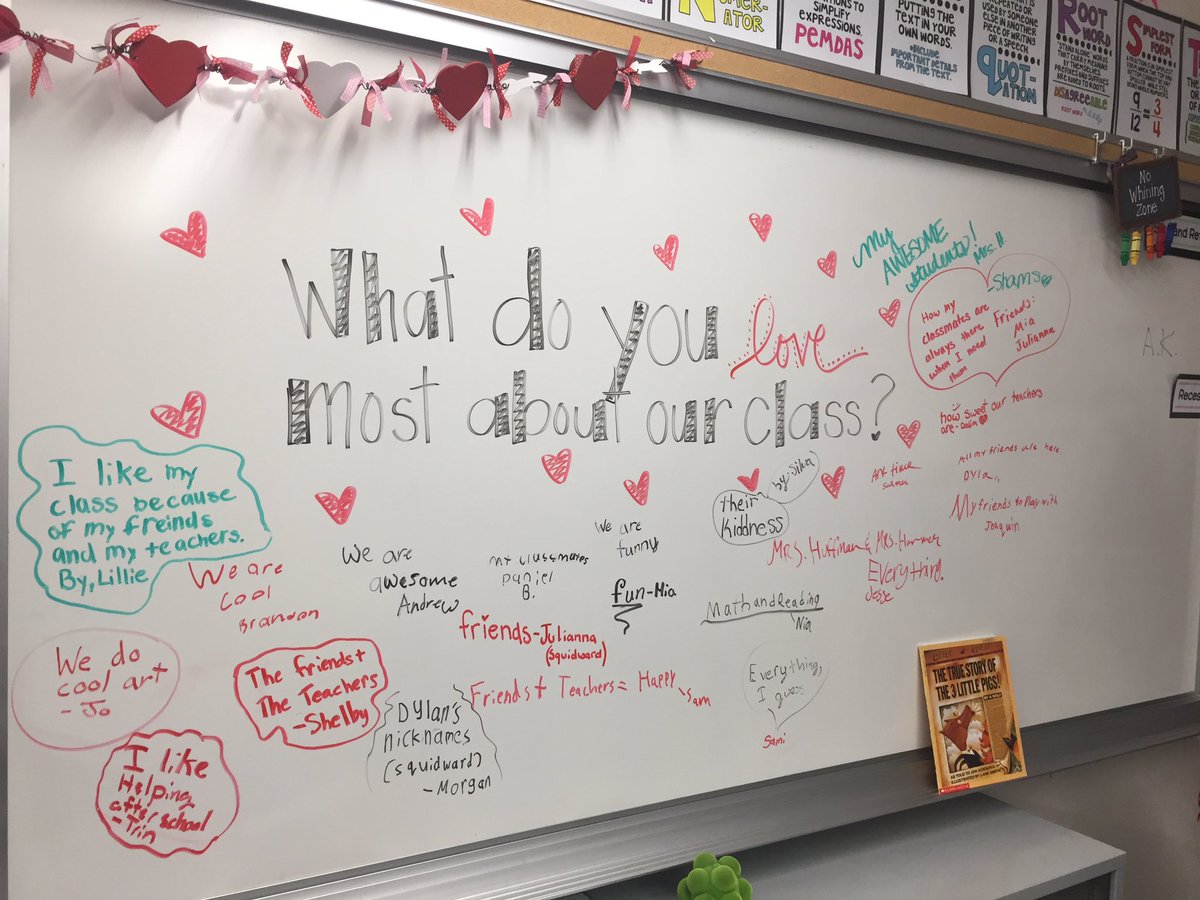 ATOR
SIMPLIFY
EXPRESSIONS.
PEMDAS
PUTTING THE
TEXT IN YOUR
OWN WORDS.
•INCLUDE
IMPORTANT DETAILS
FROM THE TEXT.
USED BY SOMEONE
ELSE IN A PIECE
OF WRITING
OR A SPEECH
QUOT-
ATION
ROOT
WORD
DISAGREEABLE
SIMPLEST
FORM
9/12 = 3/4
No
Whining
Zone
and Re
Reces
A.K.
What do you love
most about our class?
My
AWESOME
students!
Mrs. H.
-Shams
How my
classmates are
always there
when I need
them
Friends:
Mia
Julianna
how sweet our teachers
are-
All my friends are here
Dyla
My friends to play with
Joaquin
Salma
by: Silva
their
Kiddness
Mrs. Huffman & Mrs. Harmer
Everything.
Jesse
I like my
class because
of my freinds
and my teachers.
By, Lillie
We are
cool
Brandon
We are
awesome
Andrew
My classmates
Daniel
B.
We are
funny
fun-Mia
Math and Reading
-Nia
friends-Julianna
(squidward)
We do
cool art
- Jo
The friends +
The Teachers
-Shelby
Dylan's
nicknames
(squidward)
-Morgan
Friends + Teachers = Happy
-Sam
Everything,
I guess
Sami
I like
Helping
after school
-Trin
THE TRUE STORY OF
THE 3 LITTLE PIGS!
BY A. WOLF
AS TOLD TO JON SCIESZKA
ILLUSTRATED BY LANE SMITH
SCHOLASTIC